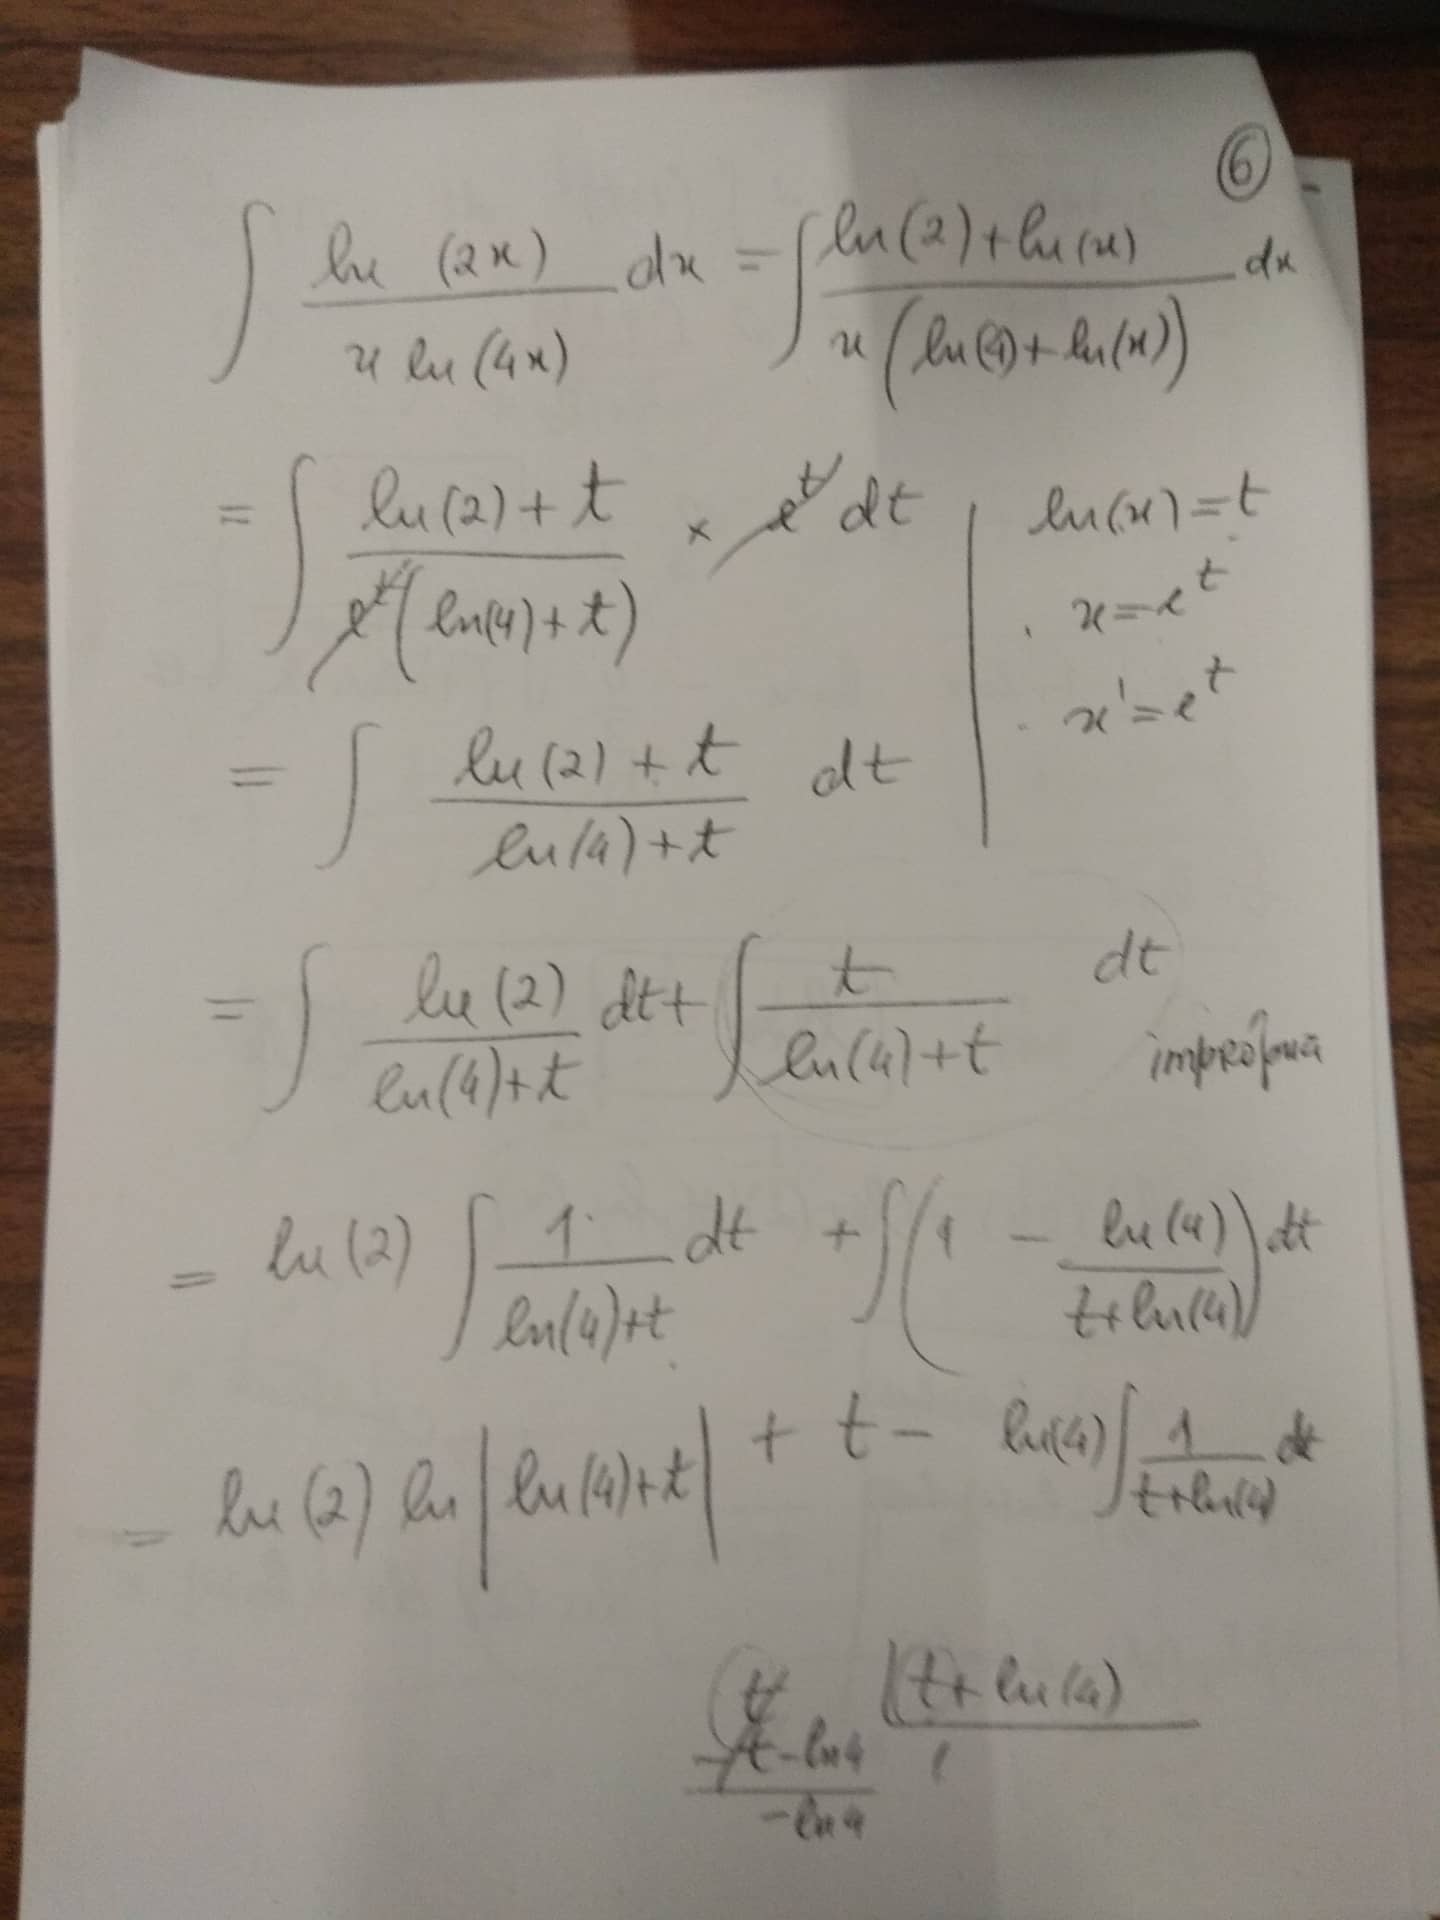 6
∫ ln (2x) / x ln (4x) dx = ∫ ln(2)+ln(x) / x(ln(4)+ln(x)) dx
= ∫ ln(2)+t / e^t(ln(4)+t) × e^t dt | ln(x)=t
x=e^t
x'=e^t
= ∫ ln(2)+t / ln(4)+t dt
= ∫ ln(2) / ln(4)+t dt + ∫ t / ln(4)+t dt
imprópria
= ln(2) ∫ 1 / ln(4)+t dt + ∫(1 - ln(4) / t+ln(4)) dt
= ln(2) ln|ln(4)+t| + t - ln(4) ∫ 1 / t+ln(4) dt
t |t+ln(4)
-t-ln4 1
-ln4